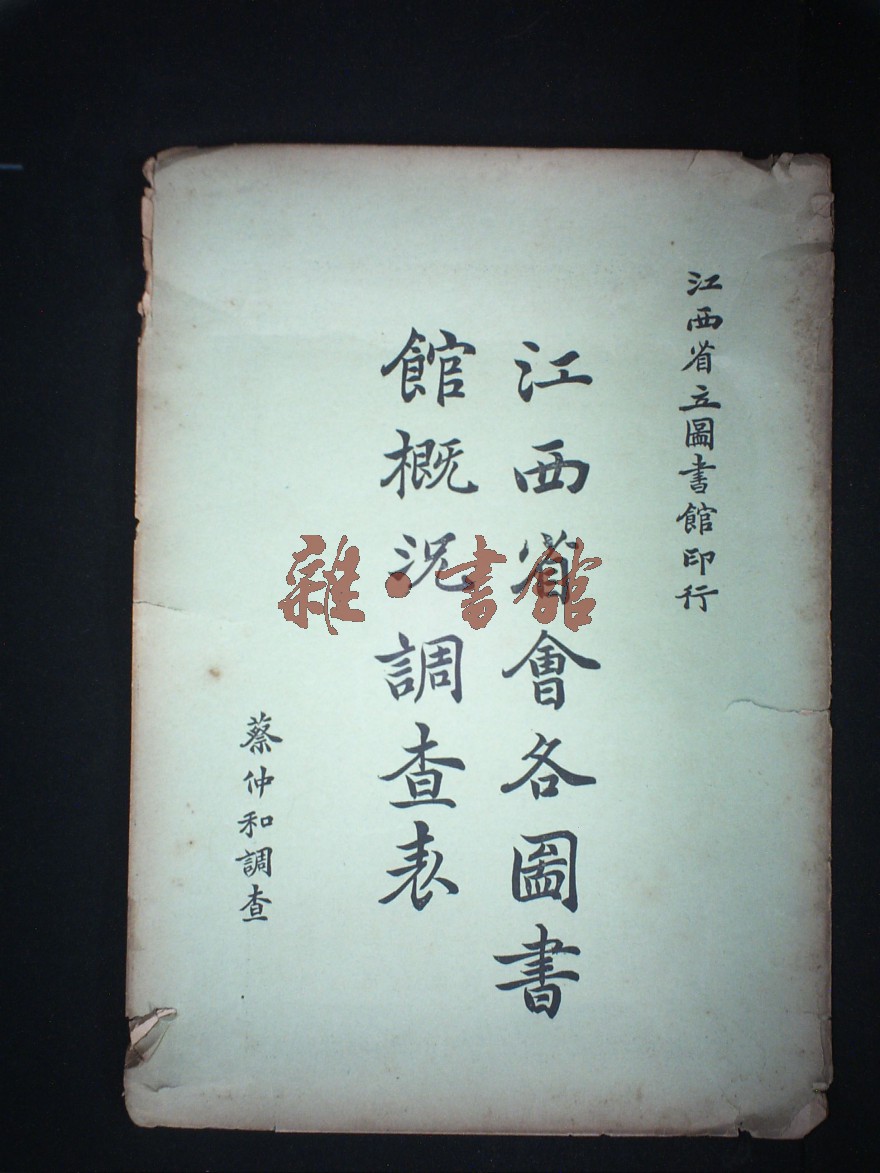 江西省立圖書館印行
江西省會各圖書
館概況調查表
蔡仲和調查
雜·書館